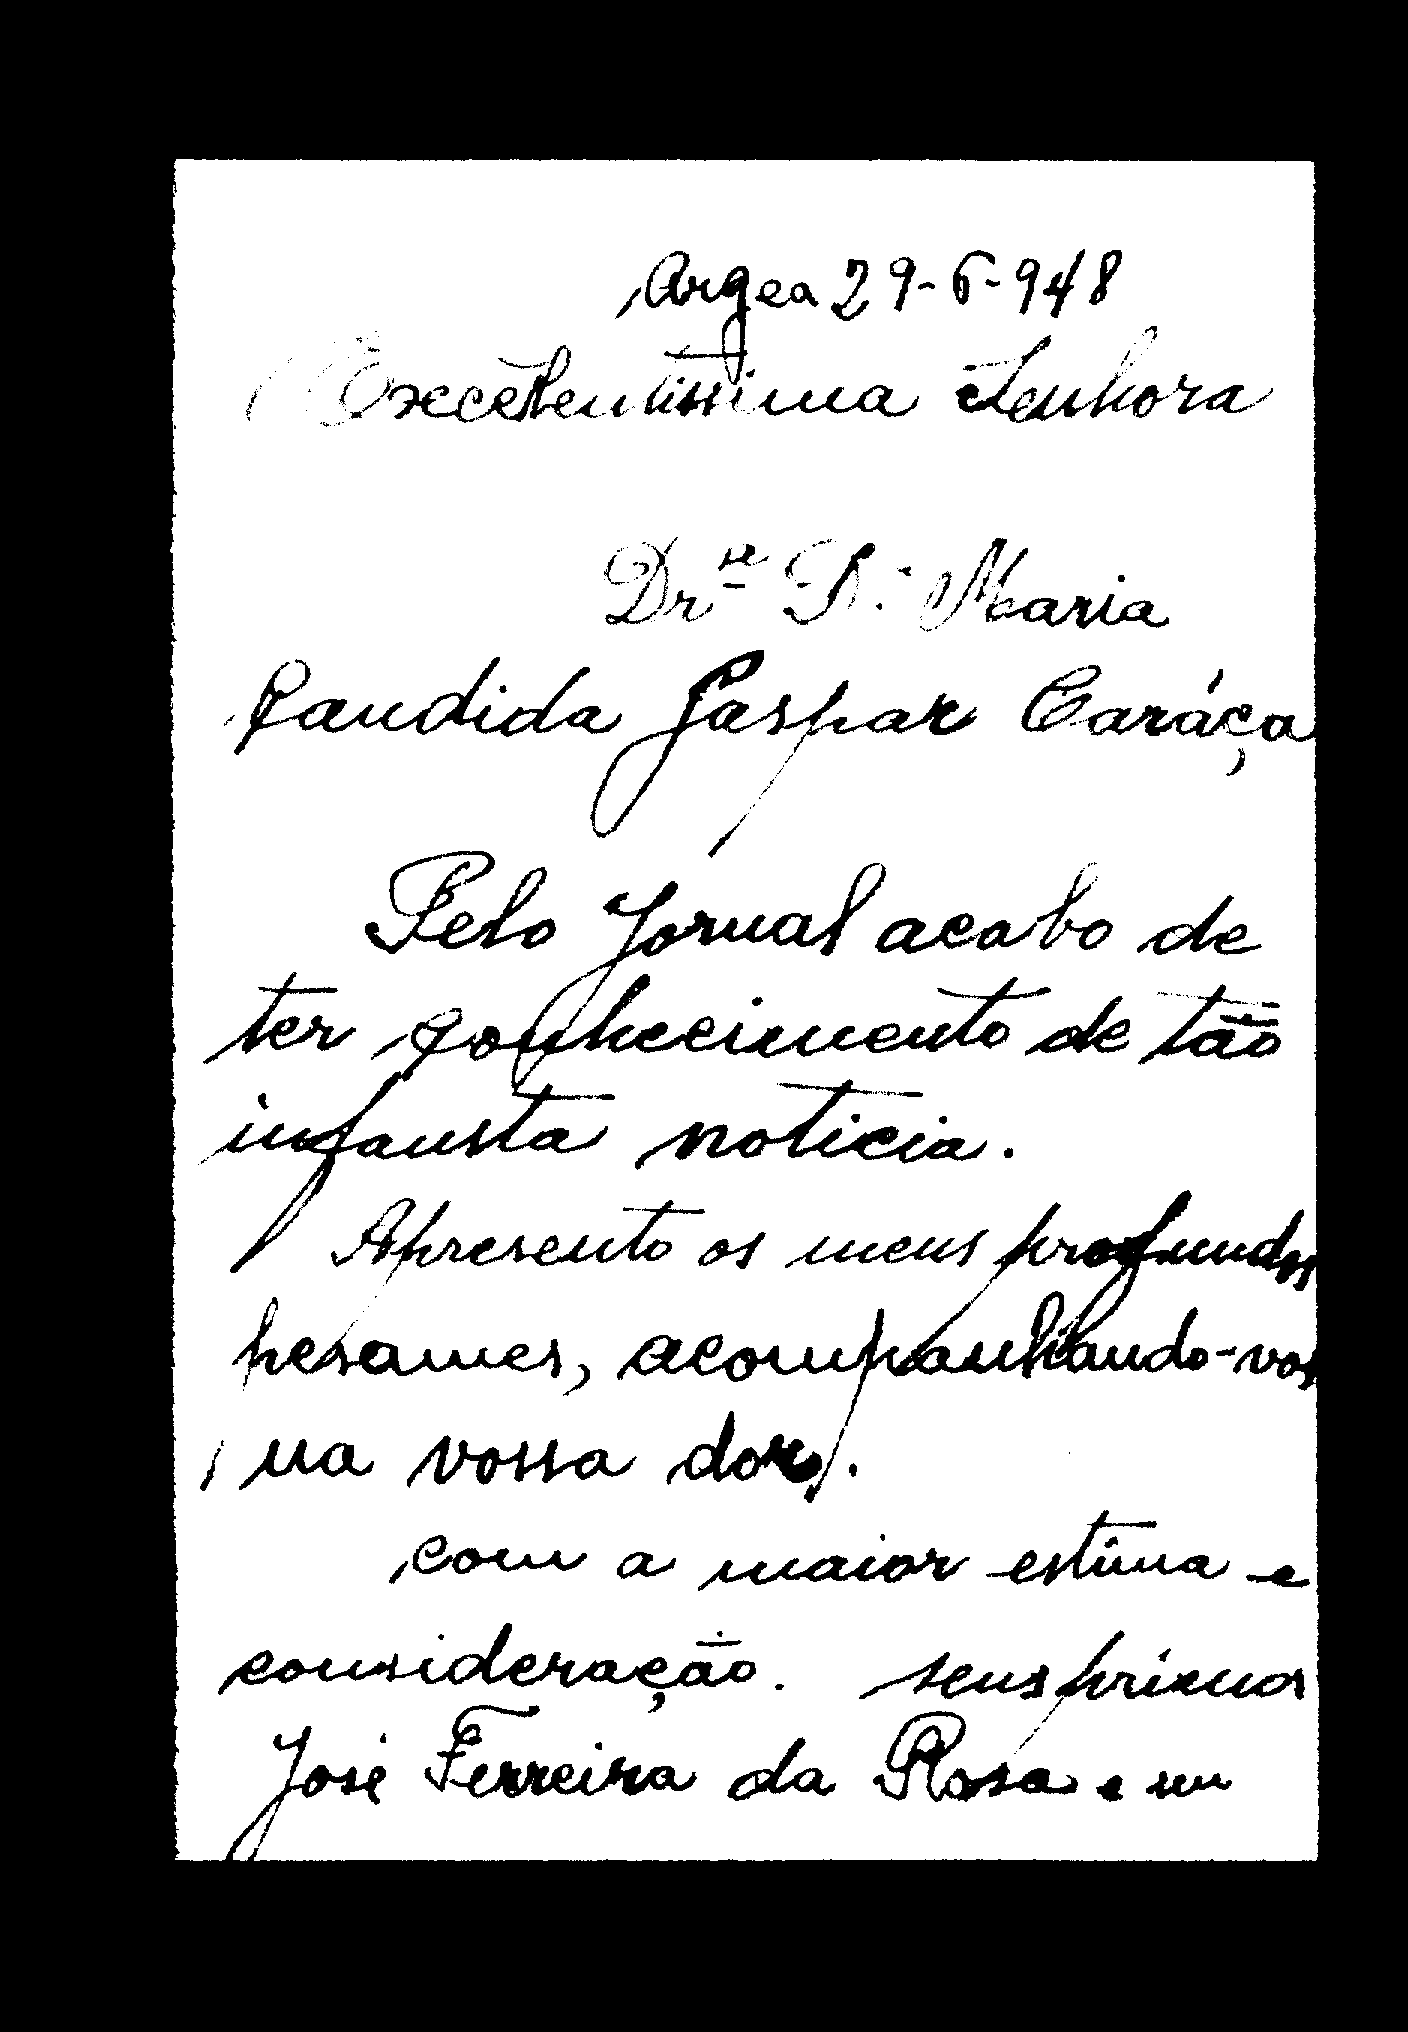 Argea 29-6-948
Excelentissima Senhora
Drª D. Maria
Candida Gaspar Caráça
Pelo Jornal acabo de
ter conhecimento de tão
infausta noticia.
Apresento os meus profundos
pesames, acompanhando-vos
na vossa dor.
com a maior estima e
consideração. seus primos
José Ferreira da Rosa e